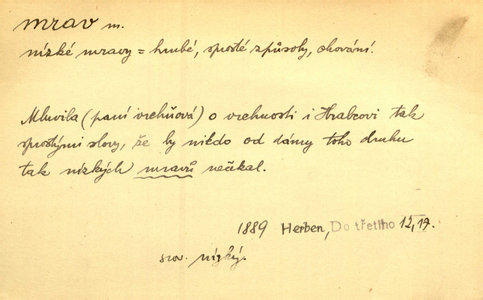 mrav m.
nízké mravy = hrubé, sprosté způsoby, chování.
Mluvila (paní vrchňová) o vrchnosti i Hrabcovi tak
sprostými slovy, že by nikdo od dámy toho druhu
tak nízkých mravů nečekal.
1889 Herben, Do třetího 12, 17.
srov. nízký.